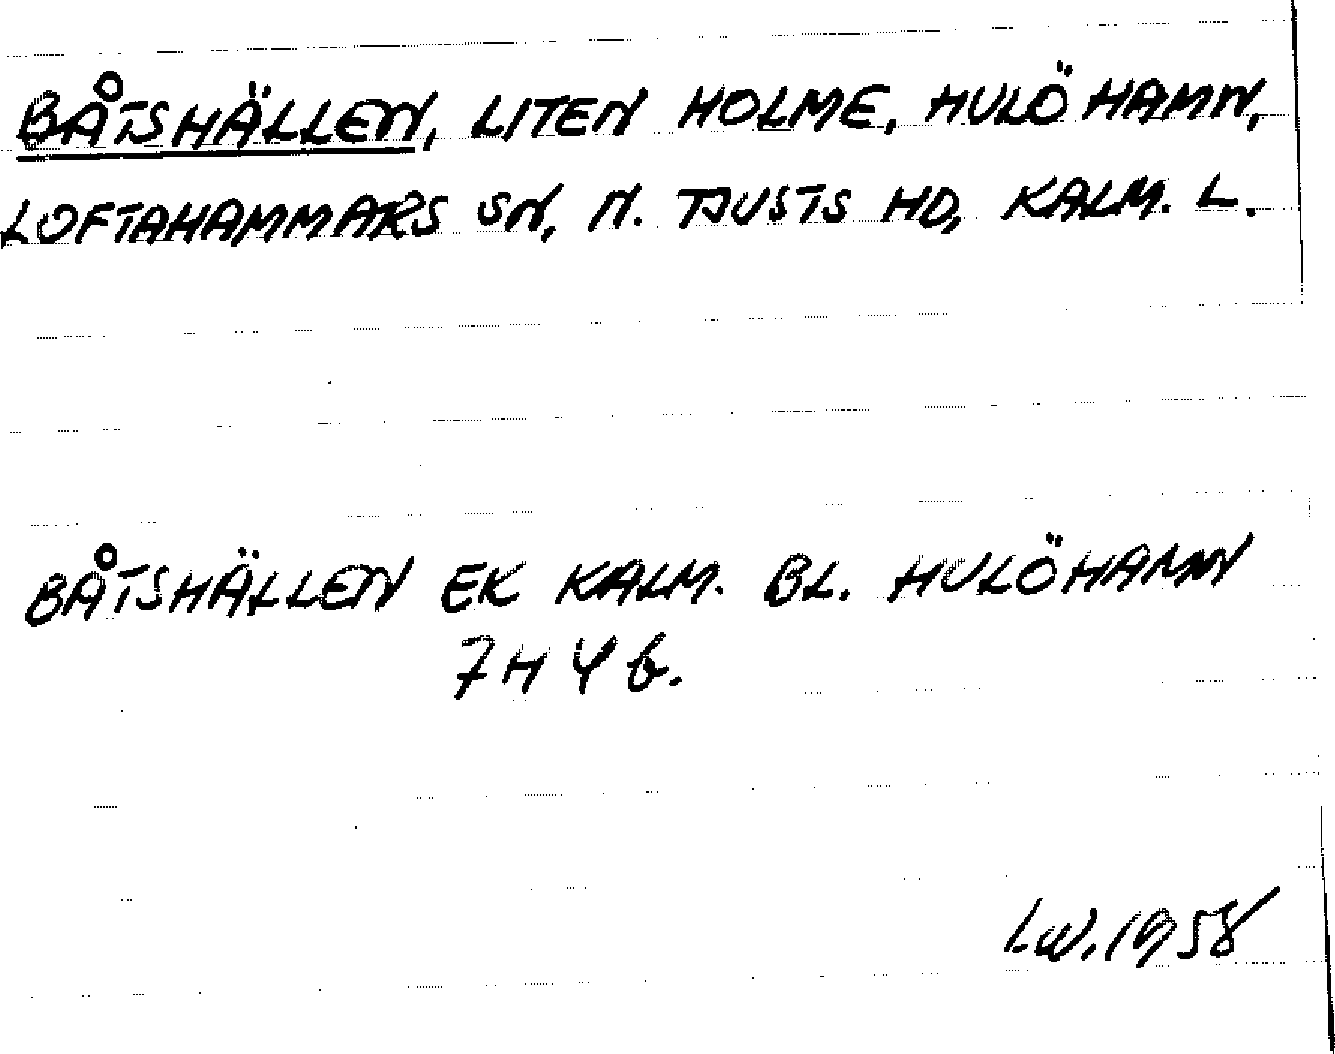 BÅTSHÄLLEN, LITEN HOLME, HULÖHAMN,
LOFTAHAMMARS SN, N. TJUSTS HD, KALM. L.
BÅTSHÄLLEN EK KALM. BL. HULÖHAMN
7H4b.
I.W. 1958